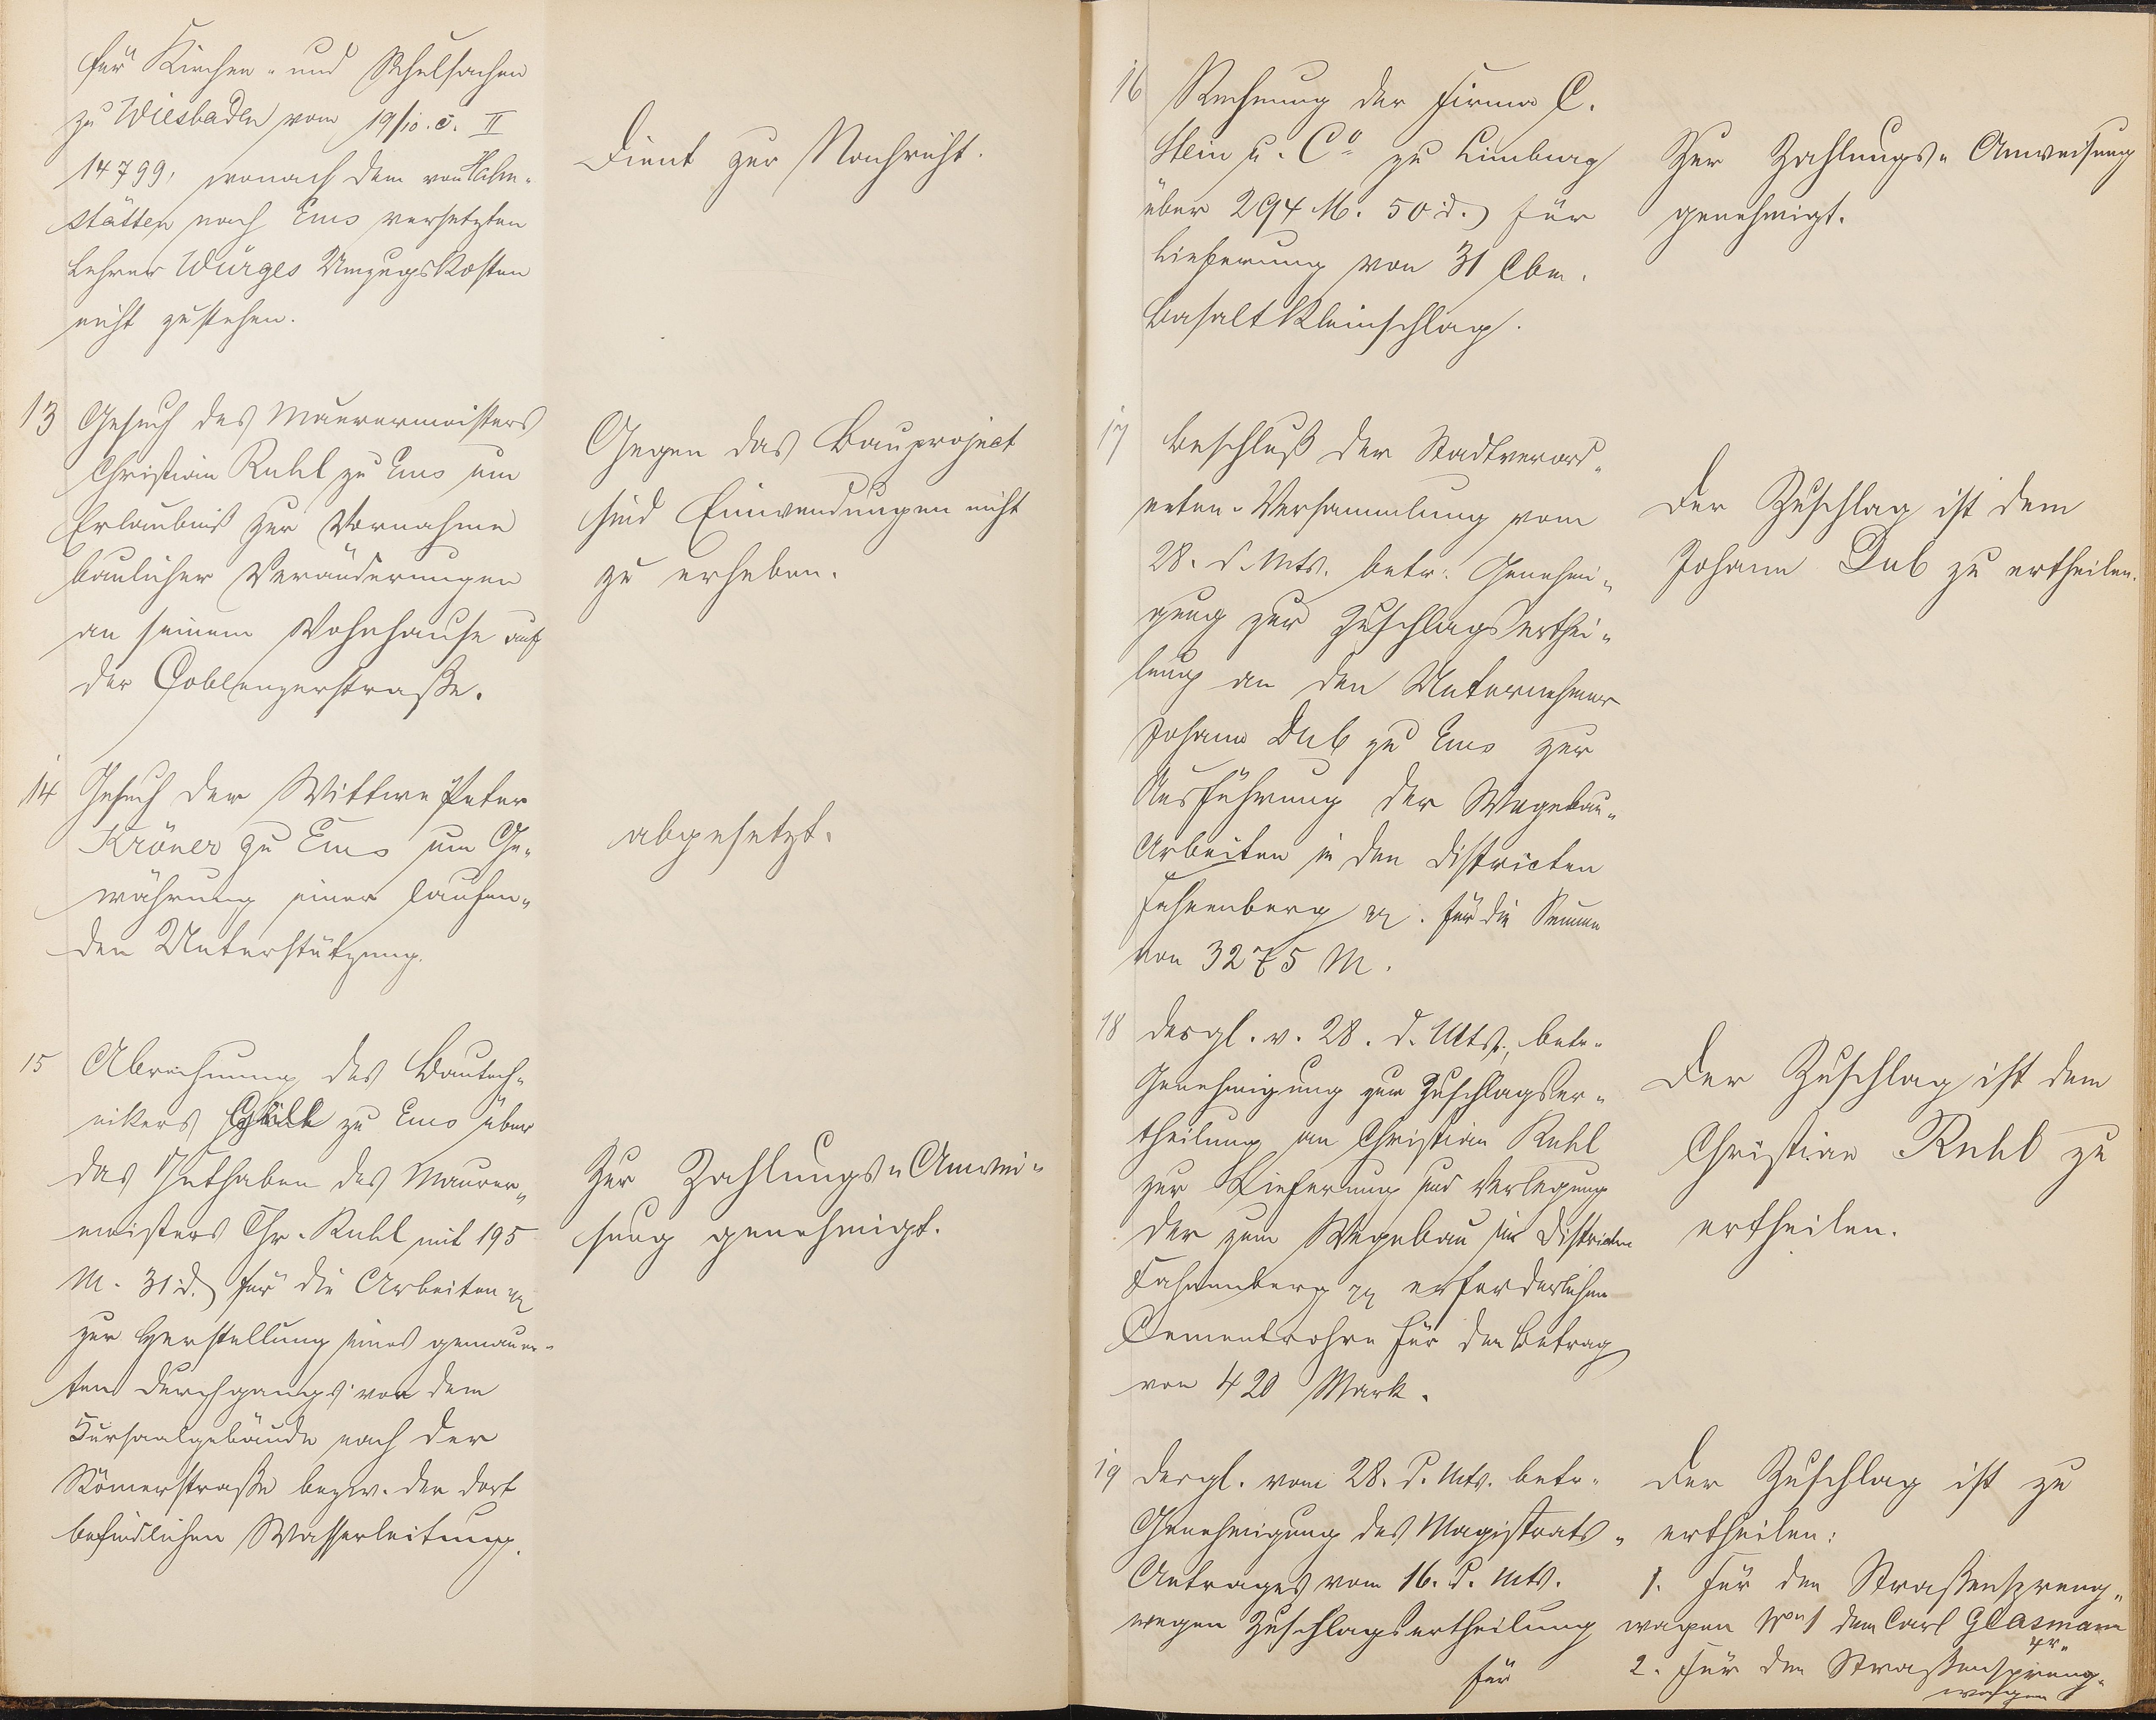 für Kirchen- und Schulsachen
zu Wiesbaden vom 19/10. c. II
14799, wonach dem von Hahn-
stätten nach Ems versetzten
Lehrer Würges Umzugskosten
nicht zustehen.
Dient zur Nachricht.
13 Gesuch des Maurermeisters
Christian Ruhl zu Ems um
Erlaubniß zur Vornahme
baulicher Veränderungen
an seinem Wohnhause auf
der Coblenzerstraße.
Gegen das Bauproject
sind Einwendungen nicht
zu erheben.
14 Gesuch der Wittwe Peter
Kröner zu Ems um Ge-
währung einer laufen-
den Unterstützung.
abgesetzt.
15 Abrechnung des Bautech-
nikers zu Ems über
das Guthaben des Maurer-
meisters Chr. Ruhl mit 195
M. 31 d. für die Arbeiten
zur Herstellung eines gemauer-
ten Durchgangs von dem
Kursaalgebäude nach der
Römerstraße bezw. der dort
befindlichen Wasserleitung.
Zur Zahlungs-Anwei-
sung genehmigt.
16 Rechnung der Firma C.
Stein u. Co zu Limburg
über 294 M. 50 d. für
Lieferung von 31 Cbm.
Basaltkleinschlag.
Zur Zahlungs-Anweisung
genehmigt.
17 Beschluß der Stadtverord-
neten-Versammlung vom
28. d. Mts. betr. Genehmi-
gung zur Zuschlagserthei-
lung an den Unternehmer
Johann Dub zu Ems zur
Ausführung der Wegebau-
Arbeiten in den Districten
Fahnenberg pp. für die Summe
von 3275 M.
Der Zuschlag ist dem
Johann Dub zu ertheilen.
18 desgl. v. 28. d. Mts., betr.
Genehmigung zur Zuschlagser-
theilung an Christian Ruhl
zur Lieferung und Verlegung
der zum Wegebau im Districten
Fahnenberg pp erforderlichen
Cementrohre für den Betrag
von 420 Mark.
Der Zuschlag ist dem
Christian Ruhl zu
ertheilen.
19 desgl. vom 28. d. Mts. betr.
Genehmigung des Magistrats-
Antrages vom 16. d. Mts.
wegen Zuschlagsertheilung
für
Der Zuschlag ist zu
ertheilen:
1. Für den Straßenspreng-
wagen No 1 dem Carl Glasmann
2. Für den Straßenspreng-
wagen